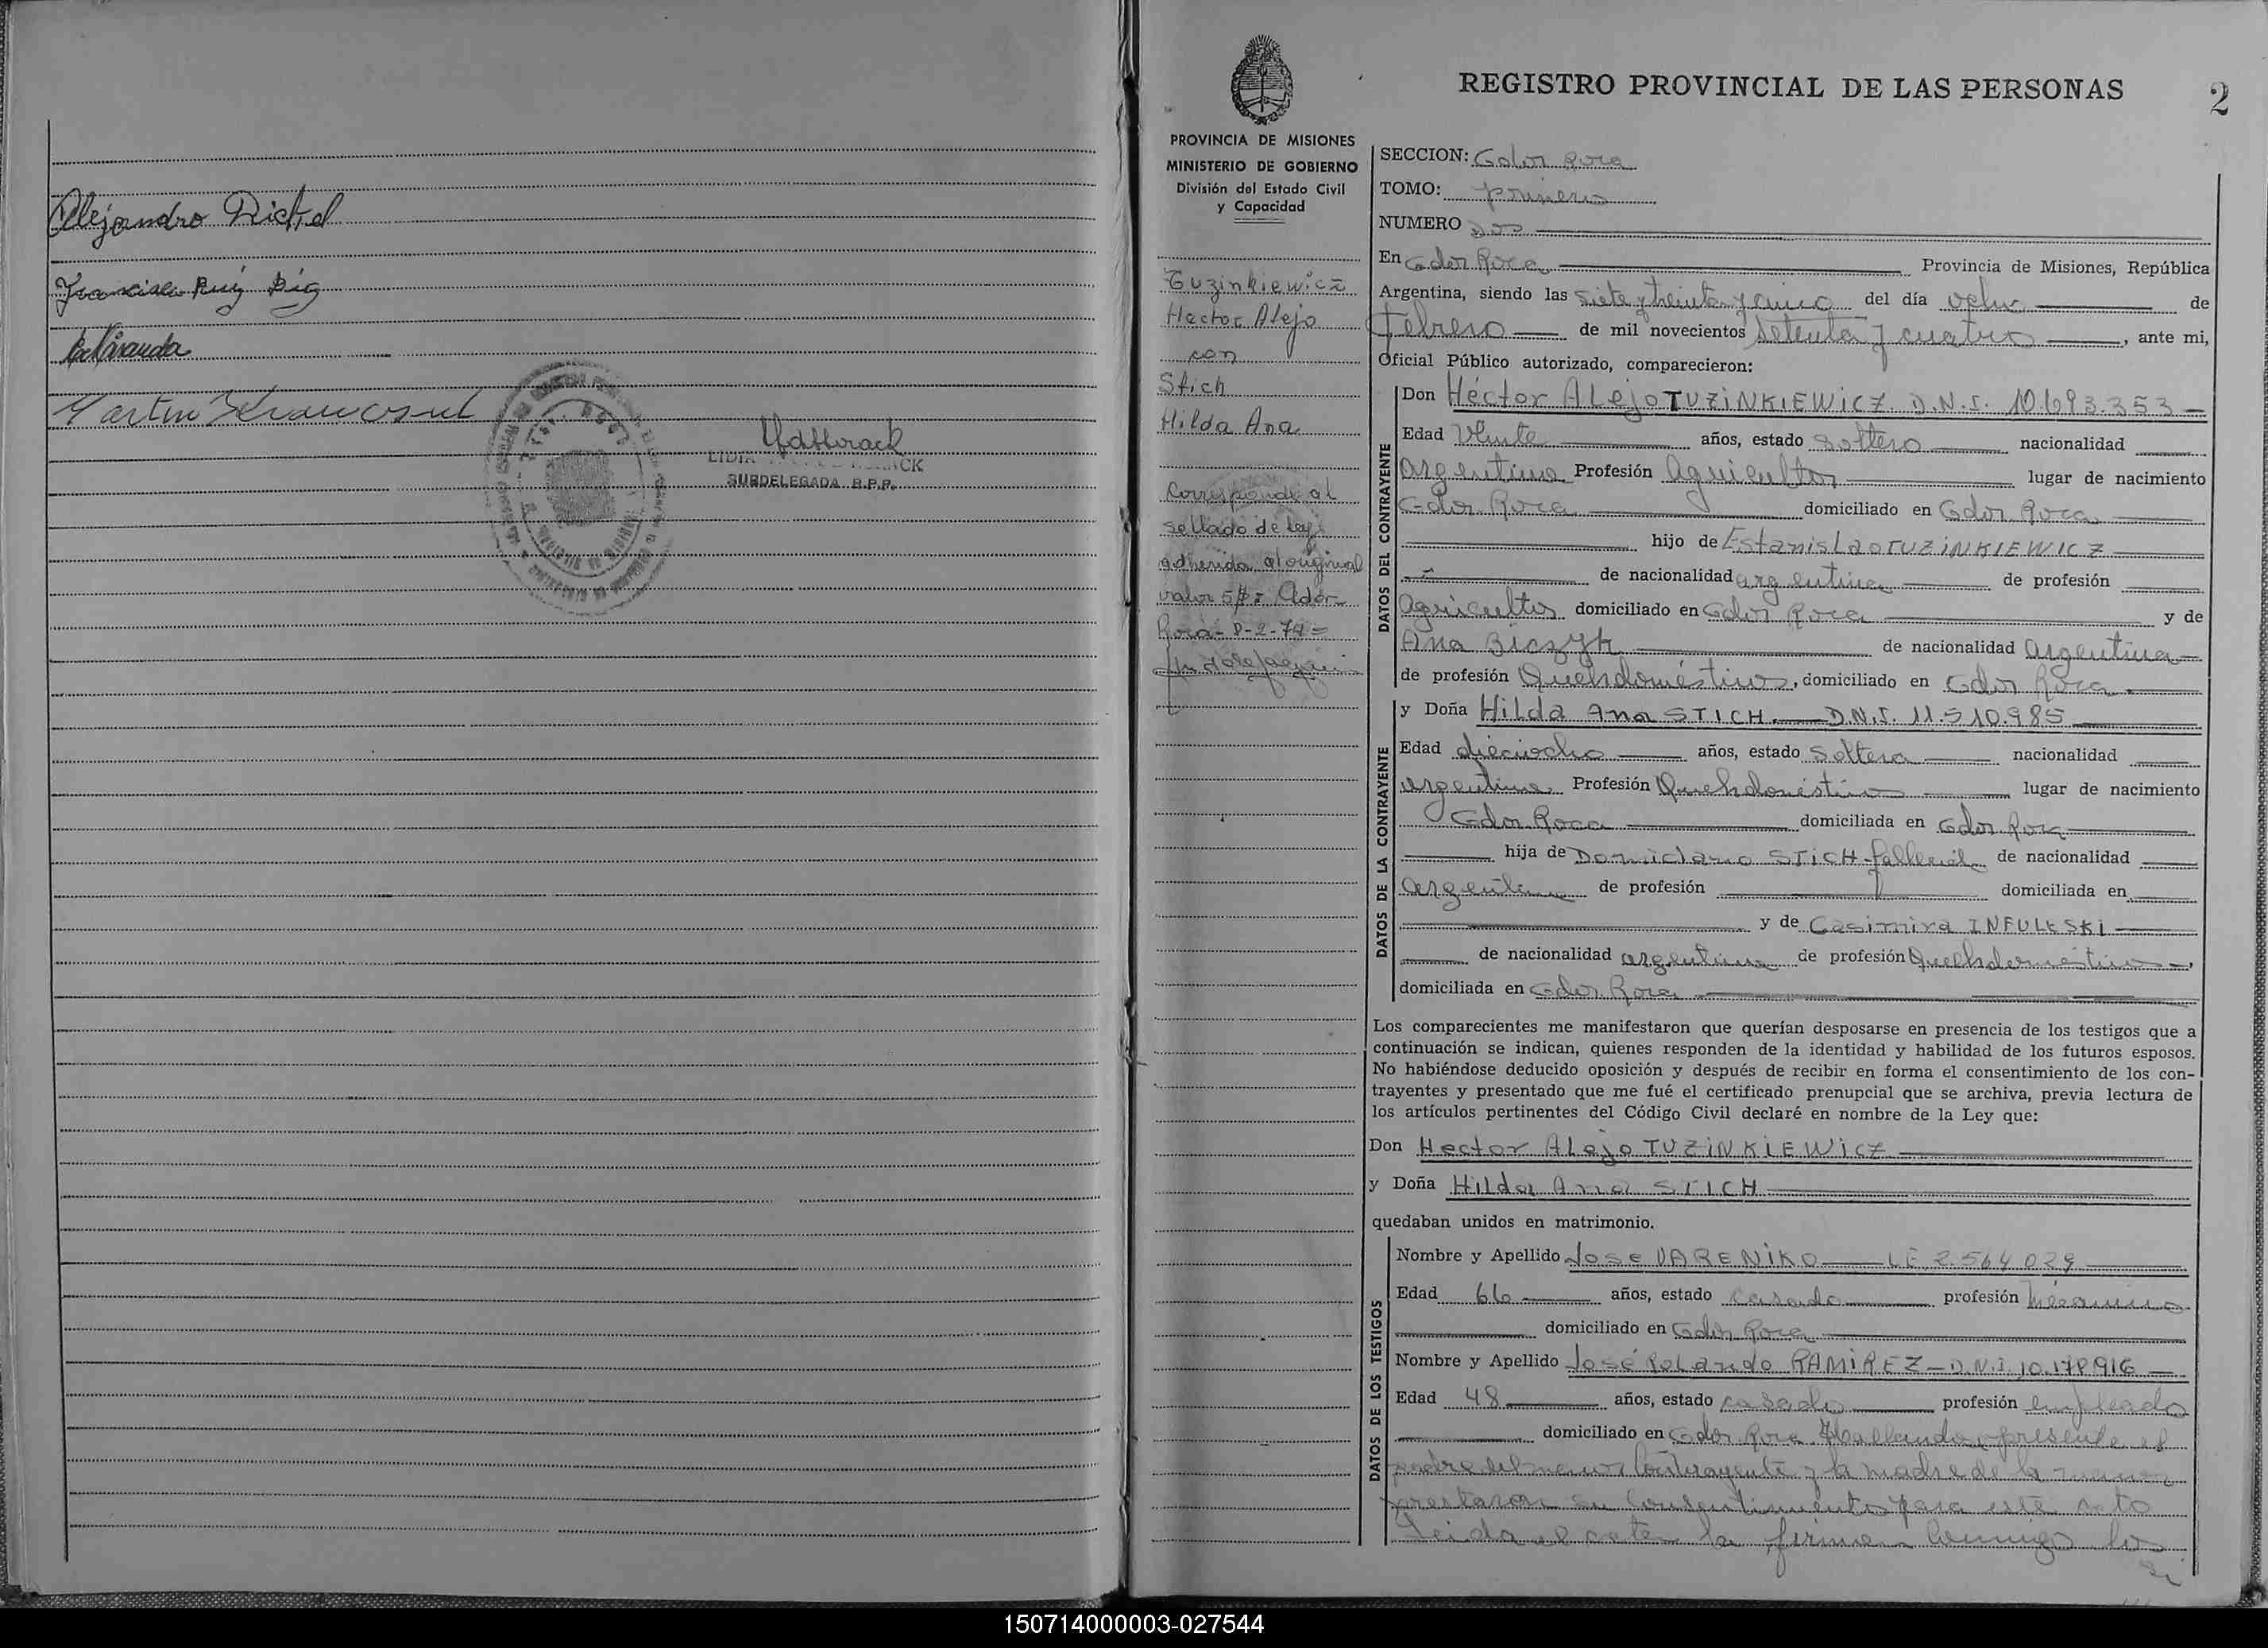 Alejandro Dickel
Francisco Ruiz Díg
Martin
LIDIA
SUBDELEGADA R.P.P.
PROVINCIA DE MISIONES
MINISTERIO DE GOBIERNO
División del Estado Civil
y Capacidad
Tuzinkiewicz
Hector Alejo
con
Stich
Hilda Ana
Corresponde al
sellado de ley
adherida al original
valor 5$= Gdor
Roca- 8-2-74=
REGISTRO PROVINCIAL DE LAS PERSONAS 2
SECCION: Gdor Roca
TOMO: primero
NUMERO dos
En Gdor Roca Provincia de Misiones, República
Argentina, siendo las siete y treinta y cinco del día ocho de
febrero de mil novecientos setenta y cuatro, ante mi,
Oficial Público autorizado, comparecieron:
DATOS DEL CONTRAYENTE
Don Héctor ALejo TUZiNKIEWicZ. D.N.I. 10.693.353
Edad veinte años, estado soltero nacionalidad
argentina Profesión agricultor lugar de nacimiento
Gdor Roca domiciliado en Gdor Roca
hijo de Estanislao TUZiNKIEWICZ
de nacionalidad argentina de profesión
agricultor domiciliado en Gdor Roca y de
Ana Biczyk de nacionalidad argentina
de profesión Quehdomésticos, domiciliado en Gdor Roca
DATOS DE LA CONTRAYENTE
y Doña Hilda Ana STICH D.N.I. 11.510.985
Edad dieciocho años, estado soltera nacionalidad
argentina Profesión Quehdomésticos lugar de nacimiento
Gdor Roca domiciliada en Gdor Roca
hija de STICH de nacionalidad
argentina de profesión domiciliada en
y de Casimira INFULESKI
de nacionalidad argentina de profesión Quehdomésticos,
domiciliada en Gdor Roca
Los comparecientes me manifestaron que querían desposarse en presencia de los testigos que a
continuación se indican, quienes responden de la identidad y habilidad de los futuros esposos.
No habiéndose deducido oposición y después de recibir en forma el consentimiento de los con-
trayentes y presentado que me fué el certificado prenupcial que se archiva, previa lectura de
los artículos pertinentes del Código Civil declaré en nombre de la Ley que:
Don Hector ALejo TUZiNKiEWicZ
y Doña Hilda Ana STICH
quedaban unidos en matrimonio.
DATOS DE LOS TESTIGOS
Nombre y Apellido Jose VARENiKO LE 2.564.029
Edad 66 años, estado casado profesión mecánico
domiciliado en Gdor Roca
Nombre y Apellido José RoLando RAMiREZ - D.N.I. 10.178.916
Edad 48 años, estado casado profesión empleado
domiciliado en Gdor Roca. Hallandose presente el
padre del menor contrayente y la madre de la menor
prestaron su consentimiento para este acto
Leida el acta la firman conmigo los
150714000003-027544